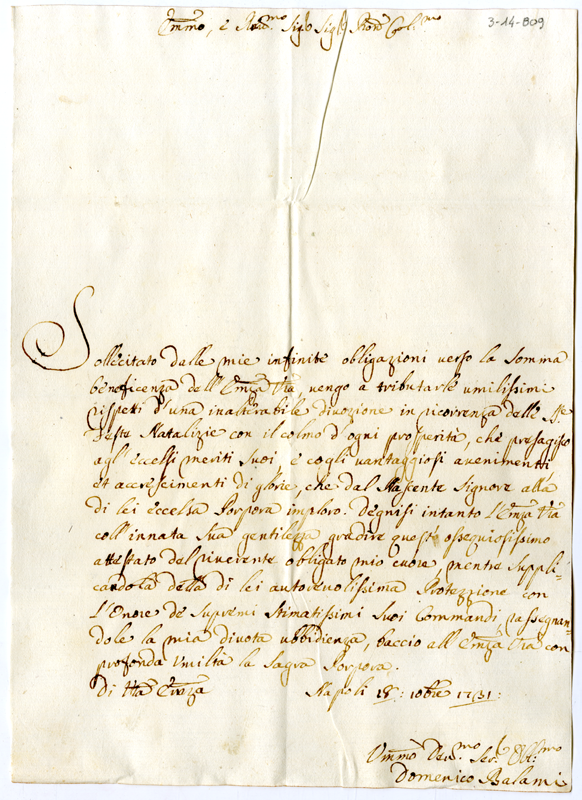 3-14-809
Emmo, e Revmo. Sigre Sigre Pron Col:mo
Sollecitato dalle mie infinite obligazioni verso la somma
beneficenza dell'Emza Vra vengo a tributarle umilissimi
rispetti d'una inalterabile divozione in ricorrenza delle Ste
Feste Natalizie con il colmo d'ogni prosperità, che presagisco
agl'eccelsi meriti suoi, e cogli vantaggiosi avenimenti
et accrescimenti di glorie, che dal Nascente Signore alla
di lei eccelsa Porpora imploro. Degnisi intanto l'Emza Vra
coll'innata sua gentilezza gradire questo ossequiosissimo
attestato del riverente obligato mio cuore, mentre suppli-
candola della di lei autorevolissima Protezzione con
l'Onore de supremi stimatissimi suoi Commandi, rassegnan-
dole la mia divota ubbidienza, baccio all'Emza Vra con
profonda umiltà la Sagra Porpora.
di Vra Emza Napoli 18: 10bre 1731:
Ummo Devmo. Ser. Obl:mo
Domenico Balami